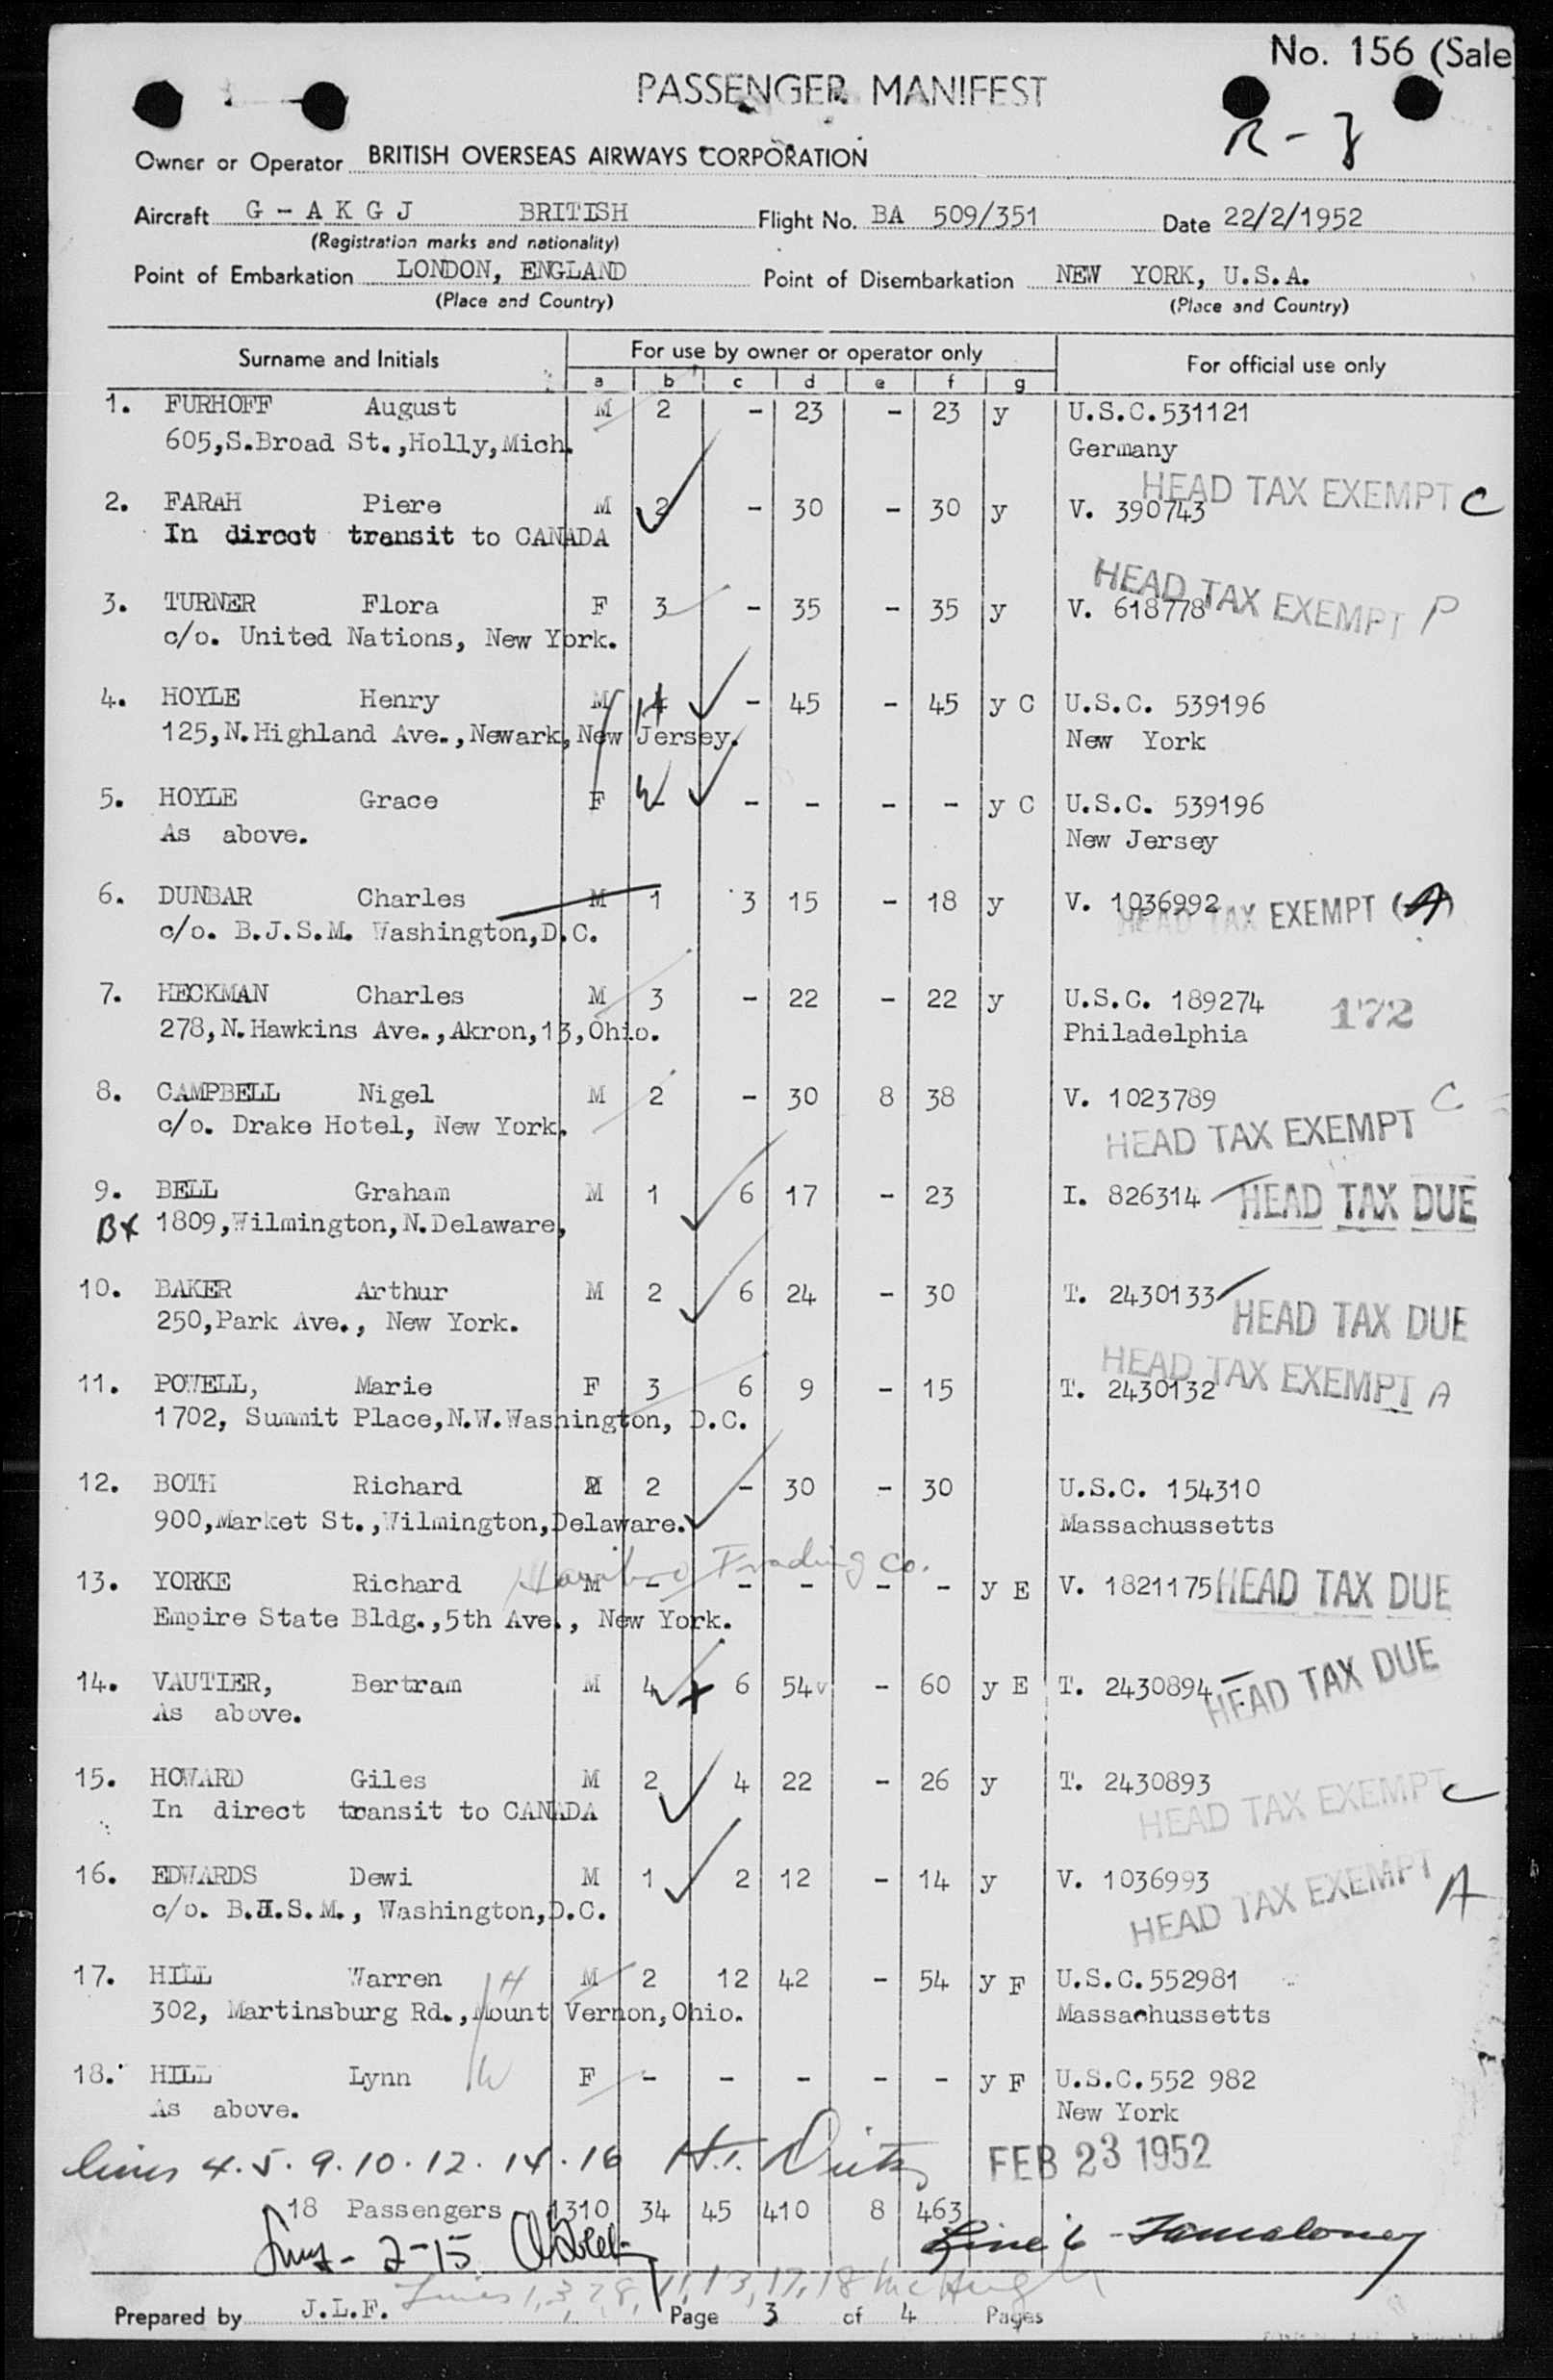 No. 156 (Sale
PASSENGER MANIFEST
R - 3
Owner or Operator BRITISH OVERSEAS AIRWAYS CORPORATION
Aircraft G - A K G J BRITISH Flight No. BA 509/351 Date 22/2/1952
(Registration marks and nationality)
Point of Embarkation LONDON, ENGLAND Point of Disembarkation NEW YORK, U.S.A.
(Place and Country) (Place and Country)
Surname and Initials For use by owner or operator only For official use only
a b c d e f g
1. FURHOFF August M 2 - 23 - 23 y U.S.C.531121
605,S.Broad St.,Holly,Mich. Germany
HEAD TAX EXEMPT C
2. FARAH Piere M 2 - 30 - 30 y V. 390743
In direct transit to CANADA
HEAD TAX EXEMPT P
3. TURNER Flora F 3 - 35 - 35 y V. 618778
c/o. United Nations, New York.
4. HOYLE Henry M 4 - 45 - 45 y C U.S.C. 539196
125,N.Highland Ave.,Newark,New Jersey. New York
5. HOYLE Grace F - - - - - y C U.S.C. 539196
As above. New Jersey
6. DUNBAR Charles M 1 3 15 - 18 y V. 1036992
HEAD TAX EXEMPT (A)
c/o. B.J.S.M. Washington,D.C.
7. HECKMAN Charles M 3 - 22 - 22 y U.S.C. 189274 172
278,N.Hawkins Ave.,Akron,13,Ohio. Philadelphia
8. CAMPBELL Nigel M 2 - 30 8 38 V. 1023789 C
c/o. Drake Hotel, New York. HEAD TAX EXEMPT
9. BELL Graham M 1 6 17 - 23 I. 826314 HEAD TAX DUE
BX 1809,Wilmington,N.Delaware,
10. BAKER Arthur M 2 6 24 - 30 T. 2430133
250,Park Ave., New York. HEAD TAX DUE
HEAD TAX EXEMPT A
11. POWELL, Marie F 3 6 9 - 15 T. 2430132
1702, Summit Place,N.W.Washington, D.C.
12. BOTH Richard M 2 - 30 - 30 U.S.C. 154310
900,Market St.,Wilmington,Delaware. Massachussetts
Trading Co.
13. YORKE Richard M - - - - - y E V. 1821175 HEAD TAX DUE
Empire State Bldg.,5th Ave., New York.
14. VAUTIER, Bertram M 4 6 54 - 60 y E T. 2430894 HEAD TAX DUE
As above.
15. HOWARD Giles M 2 4 22 - 26 y T. 2430893
In direct transit to CANADA HEAD TAX EXEMPT C
16. EDWARDS Dewi M 1 2 12 - 14 y V. 1036993
c/o. B.J.S.M., Washington,D.C. HEAD TAX EXEMPT A
17. HILL Warren H M 2 12 42 - 54 y F U.S.C.552981
302, Martinsburg Rd.,Mount Vernon,Ohio. Massachussetts
18. HILL Lynn W F - - - - - y F U.S.C.552 982
As above. New York
lines 4.5.9.10.12.14.16 H.T. FEB 23 1952
18 Passengers 1310 34 45 410 8 463
- 2-15 Line 6 -
Lines 1,3,7,8,11,13,17,18 McHugh
Prepared by J.L.F. Page 3 of 4 Pages